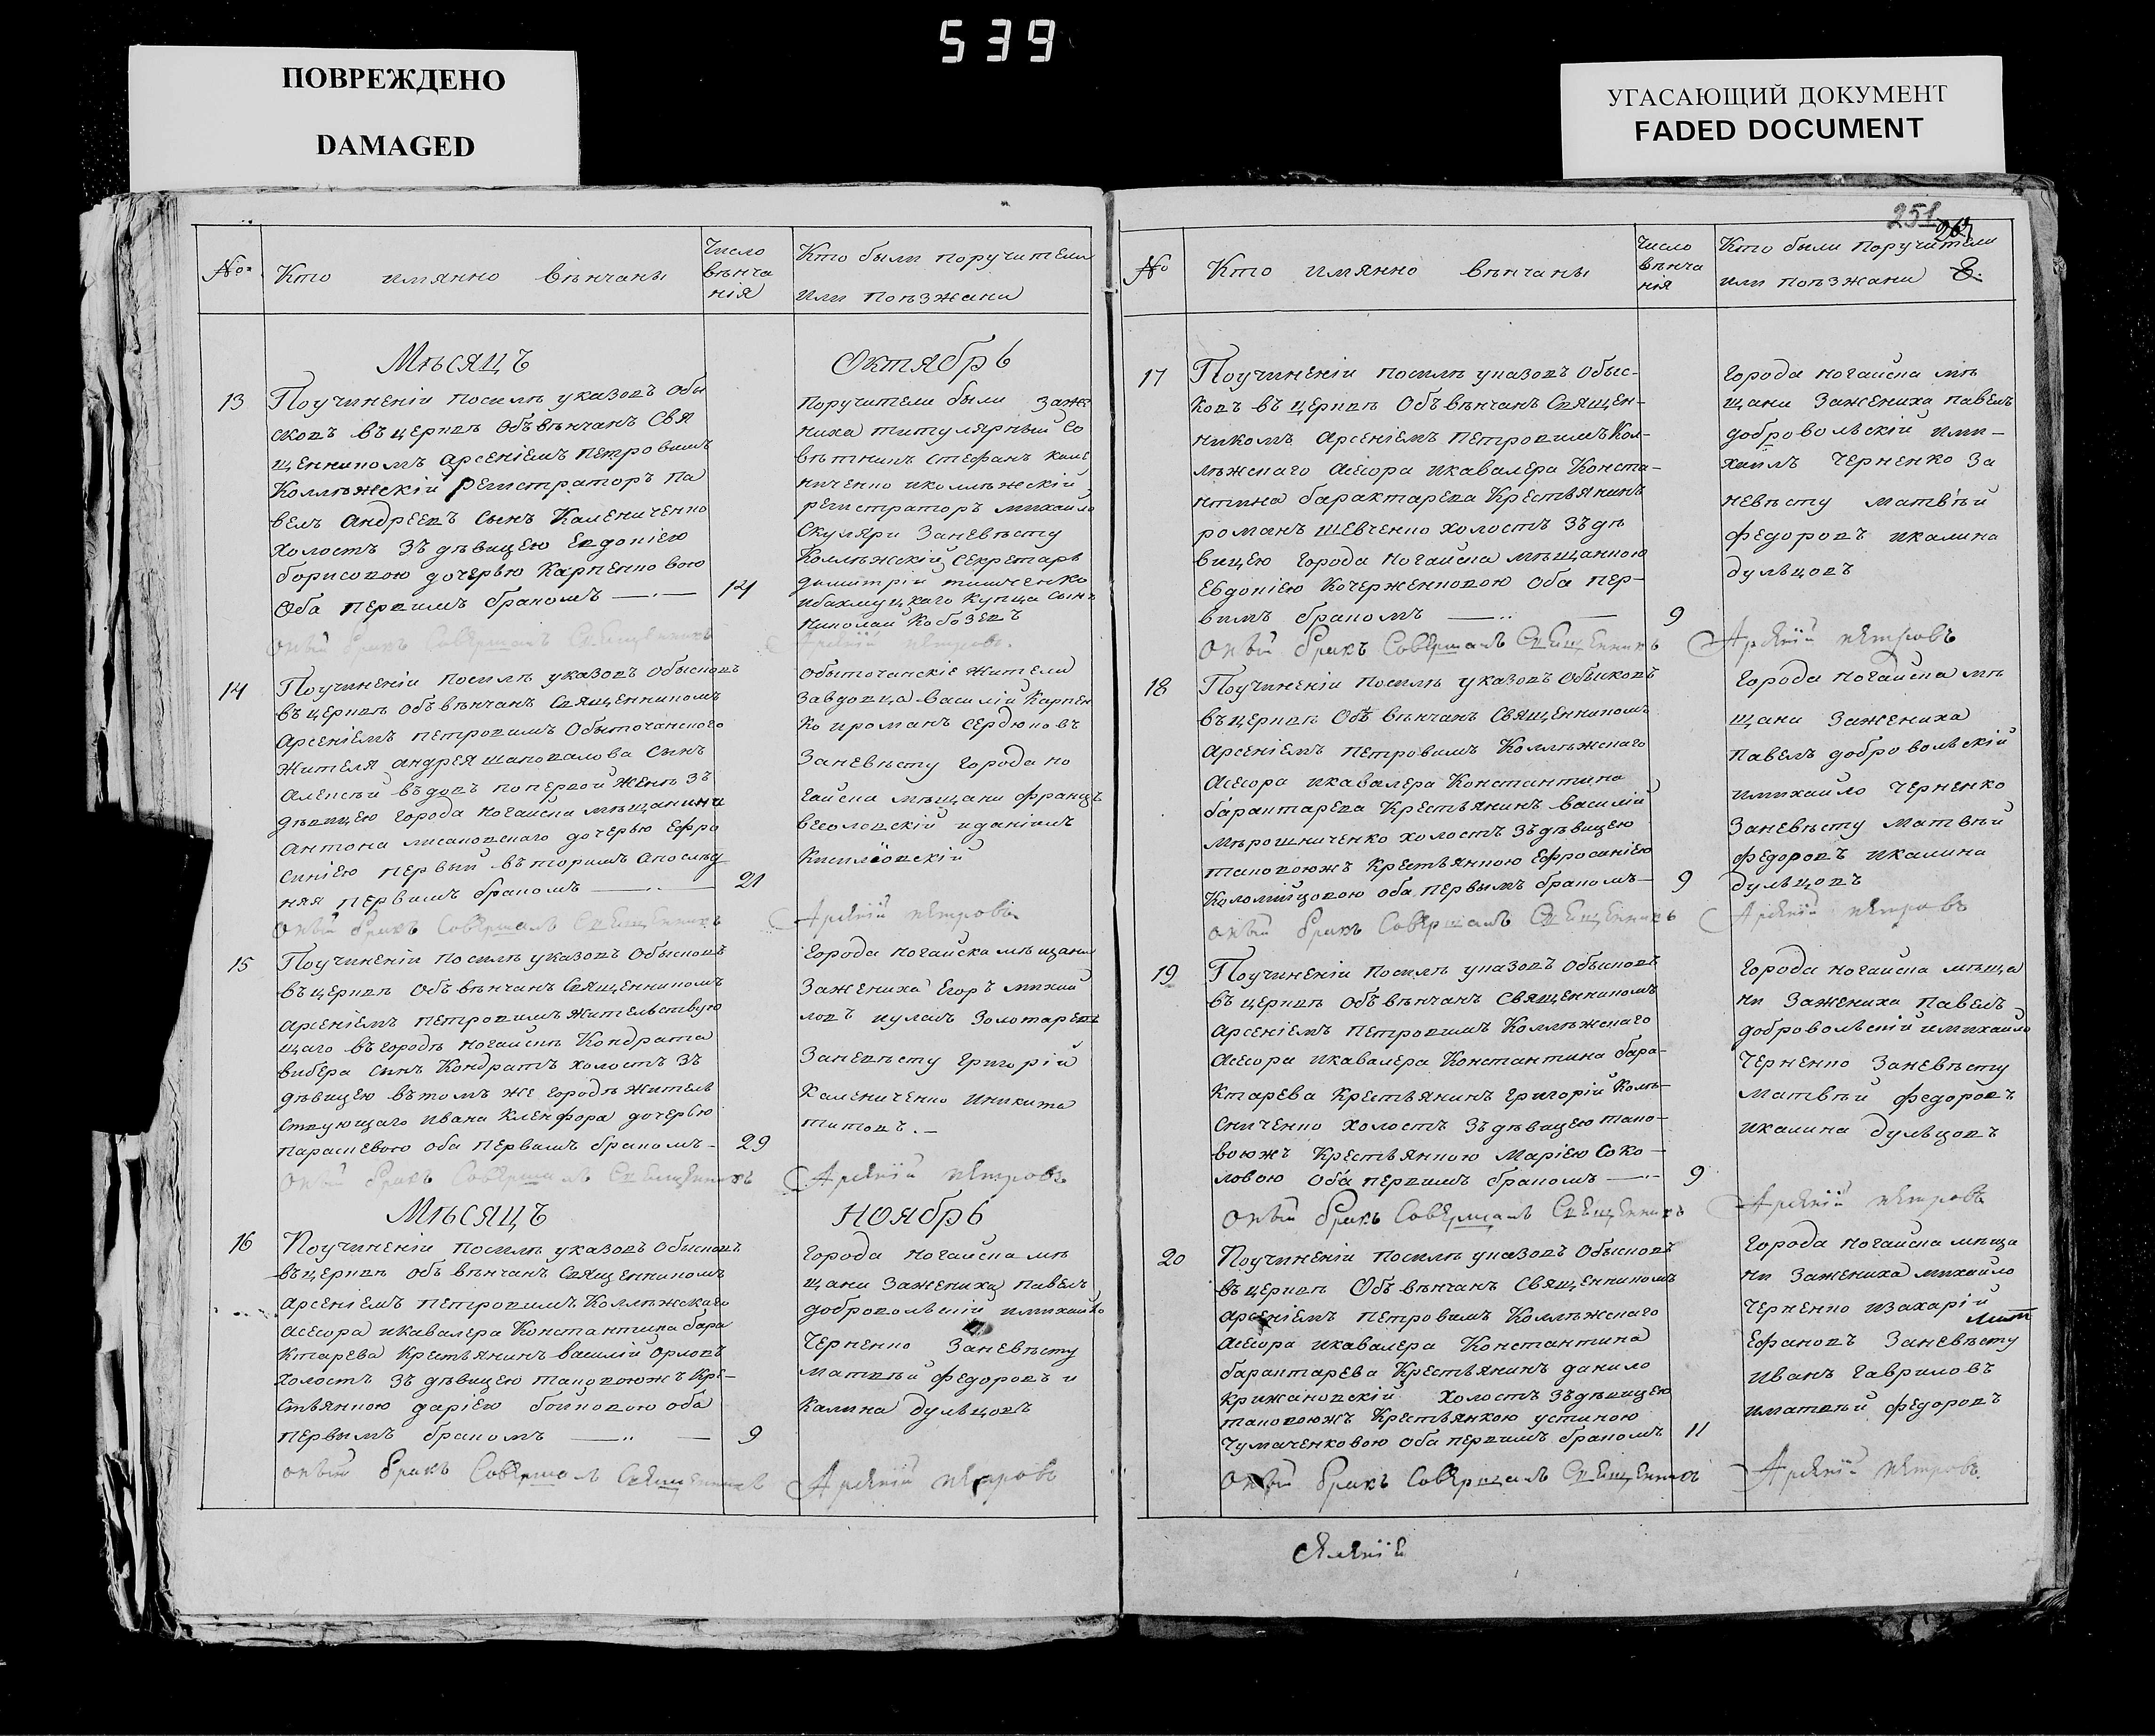 539
ПОВРЕЖДЕНО
DAMAGED
УГАСАЮЩИЙ ДОКУМЕНТ
FADED DOCUMENT
№
Кто имянно вѣнчаны
Число вѣнча нія
Кто были поручители
или поѣзжани
Мѣсяцъ Октябрь
13
Поучиненіи посилѣ указовъ обы
сковъ въ церквѣ объвѣнчанъ Свя
щенникомъ Арсеніемъ Петровимъ
Коллѣжскій Регистраторъ Па
велъ Андреевъ сынъ Калениченко
холостъ зъ дѣвицею Евдокіею
борисовою дочерью Карпенковою
Оба первимъ бракомъ
14
поручители были заже
ниха титулярный Со
вѣтникъ Стефанъ Кале
ниченко иколлѣжскій
регистраторъ михайло
Скуляри Заневѣсту
Коллѣжскій Секретарь
димитрій тимченко
ибахмуцкаго купца сынъ
Николай Кобозевъ
Оный бракъ Совершалъ Священникъ Арсеній Петровъ
14
Поучиненіи посилѣ указовъ Обысковъ
въ церквѣ объвѣнчанъ Священникомъ
Арсеніемъ Петровимъ Обыточанского
жителя андрея шаповалова Сынъ
Алексѣй вдовъ попервой женѣ зъ
дѣвицею города Ногайска мѣщанина
Антона лисаковскаго дочерью Ефро
синіею первый въторимъ апослѣд
няя первимъ бракомъ
21
Обыточанскіе жители
Завдовца Василій Карпен
ко ироманъ Сердюковъ
Заневѣсту города но
гайска мѣщани францъ
иданіилъ
Оный бракъ Совершалъ Священникъ Арсеній Петровъ
15
Поучиненіи посилѣ указовъ Обысковъ
въ церквѣ объвѣнчанъ Священникомъ
Арсеніемъ Петровимъ жительствую
щаго въ городѣ Ногайскѣ Кондрата
вибера сынъ Кондратъ холостъ зъ
дѣвицею вътомъ же городѣ житель
ствующаго Ивана Кленфора дочерью
параскевою оба первимъ бракомъ
29
Города Ногайска мѣщани
Зажениха Егоръ михай
ловъ Золотаревъ
Заневѣсту Григорій
Калениченко иникита
титовъ.
Оный бракъ Совершалъ Священникъ Арсеній Петровъ
Мѣсяцъ Ноябрь
16
Поучиненіи посилѣ указовъ Обысковъ
въ церквѣ объ вѣнчанъ Священникомъ
Арсеніемъ Петровимъ Коллѣжскаго
Асесора икавалера Константина бара
ктарева Крестьянинъ василій Орловъ
Холостъ зъ дѣвицею таковоюжъ Кре-
стьянкою даріею бойковою оба
первымъ бракомъ
9
Города Ногайска мѣ
щани Зажениха павелъ
добровольскій имихайло
Черненко Заневѣсту
матвѣй федоровъ и
Калина дульцовъ
Оный бракъ Совершалъ Священникъ Арсеній Петровъ
251
8.
№
Кто имянно вѣнчаны
Число вѣнча нія
Кто были поручители
или поѣзжани
17
Поучиненіи посилѣ указовъ Обыс-
ковъ въ церквѣ Объвѣнчанъ Священ-
никомъ Арсеніемъ Петровимъ Кол-
лѣжскаго Асесора икавалера Конста-
нтина барактарева Крестьянинъ
романъ шевченко холостъ зъ дѣ
вицею города Ногайска мѣщанкою
Евдокіею Кочерженковою Оба пер-
вимъ бракомъ
9
Города Ногайска мѣ
щани Зажениха павелъ
добровольскій ими-
хайлъ Черненко За
невѣсту матвѣй
федоровъ икалина
дульцовъ
Оный бракъ Совершалъ Священникъ Арсеній Петровъ
18
Поучиненіи посилѣ указовъ Обыковъ
въ церквѣ Объ вѣнчанъ Священникомъ
Арсеніемъ Петровимъ Коллѣжскаго
Асесора икавалера Константина
барактарева Крестьянинъ василій
мѣрошниченко холостъ зъ дѣвицею
таковоюжъ Крестьянкою Ефросиніею
Коломійцовою оба первымъ бракомъ
9
Города Ногайска мѣ
щани Зажениха
павелъ добровольскій
имихайло Черненко
Заневѣсту матвѣй
федоровъ икалина
дульцовъ
Оный бракъ Совершалъ Священникъ Арсеній Петровъ
19
Поучиненіи посилѣ указовъ Обысковъ
въ церквѣ объвѣнчанъ Священникомъ
Арсеніемъ Петровимъ Коллѣжскаго
Асесора икавалера Константина бара-
ктарева Крестьянинъ Григорій Колѣ-
сниченко холостъ зъ дѣвицею тако-
воюжъ Крестьянкою Маріею Соко-
ловою Оба первимъ бракомъ
9
Города Ногайска мѣща
ни Зажениха павелъ
добровольскій имихайло
Черненко Заневѣсту
матвѣй федоровъ
икалина дульцовъ
Оный бракъ Совершалъ Священникъ Арсеній Петровъ
20
Поучиненіи посилѣ указовъ Обысковъ
въ церквѣ Объ вѣнчанъ Священникомъ
Арсеніемъ Петровымъ Коллѣжскаго
Асесора икавалера Константина
барактарева Крестьянинъ данило
Крижановскій холостъ зъ дѣвицею
таковоюжъ Крестьянкою устиною
Чумаченковою оба первимъ бракомъ
11
Города Ногайска мѣща
ни Зажениха михайло
Черненко изахарій
Ефановъ Заневѣсту
Иванъ Гавриловъ
иматвѣй федоровъ
Оный бракъ Совершалъ Священникъ Арсеній Петровъ